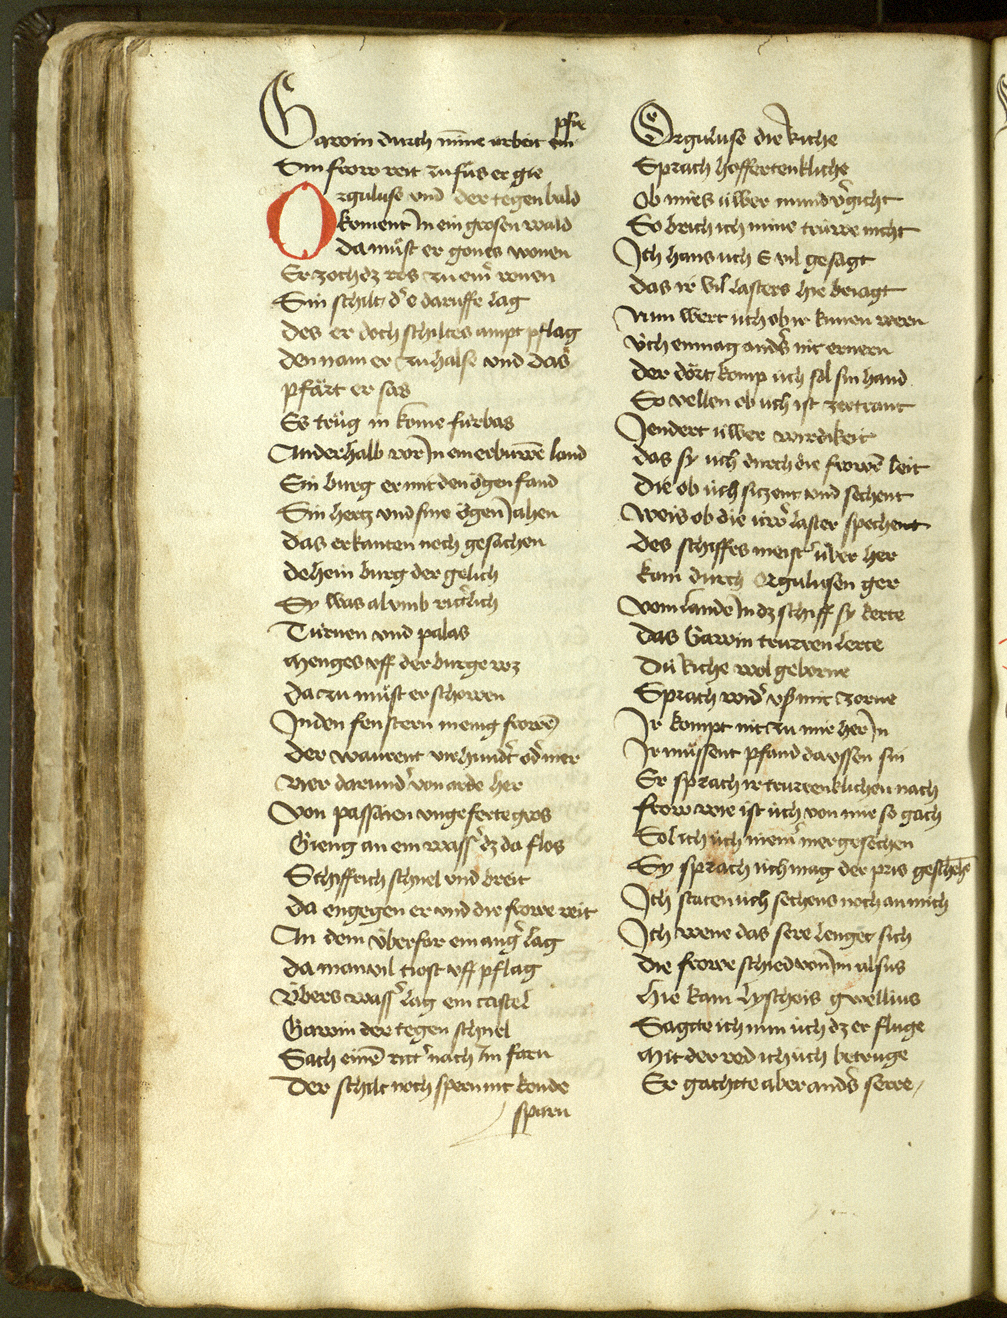 Gawin durch mīne arbeit ein pfīe
Sin frow reit zu fůs er gie
Orguluse und der tegen bald
koment In ein grosen wald
da můst er gones wonen
Er zoch dz ros zu eim̄ ronen
Sin schilt d͛ e daruffe lag
des er doch schiltes ampt pflag
den nam er zu halse und das
pfärt er sas
Es trůg in kome fürbas
Anderhalb vor In ein erbuwē land
Ein burg er mit den ögen fand
Sin hertz und sine ögen Jahen
das erkanten noch gesachen
dehein burg der gelich
Sy was al umb ritt͛lich
Türnen und palas
Menges uff der burge wz
da zu můst er schowen
In den fenstern menig frowē
Der warent vierhund͛t od͛ mer
vier darund͛ von arde her
Von passāien ungeferte gros
Gieng an ein wass͛ dz da flos
Schiffrich schnel und breit
da engegen er und die frowe reit
An dem überfar ein ang͛ lag
da man vil tiost uff pflag
Übers wass͛ lag ein castel
Gawin der tegen schnel
Sach einē ritt͛ nach Im farn
Der schilt noch sper nit konde
sparn
Orguluse die riche
Sprach hoffertenkliche
Ob mirs üwer mund v͛gicht
So brich ich mine trüwe nicht
Ich hans üch E vil gesagt
das ir vil lasters hie beiagt
Nun wert üch ob ir kunen wern
üch enmag and͛s nit ernern
der dört komp üch sol sin hand
So vellen ob üch ist zertrant
Jendert üwer wirdikeit
das sy üch durch die frowē leit
die ob üch siczent und sechent
weis ob die üw͛ laster spechent
des schiffes meist͛ über her
kam durch Orgulusen ger
vom lande In dz schiff sy kerte
das Gawin truren lerte
Dü riche wol geborne
Sprach wid͛ uß mit zorne
Ir kompt nit zu mir her In
Ir müssent pfand da ussen sin
Er sprach ir trurenklichen nach
frow wie ist üch von mir so gach
Sol ich üch niem͛ mer gesechen
Sy sprach üch mag der pris geschehē
Ich staten üch sechens noch an mich
Ich wene das sere lenget sich
die frowe schied von Im alsus
hie kam lyschois gwellius
Sagte ich nun üch dz er fluge
Mit der red ich üch betruge
Er gachtte aber and͛s serre